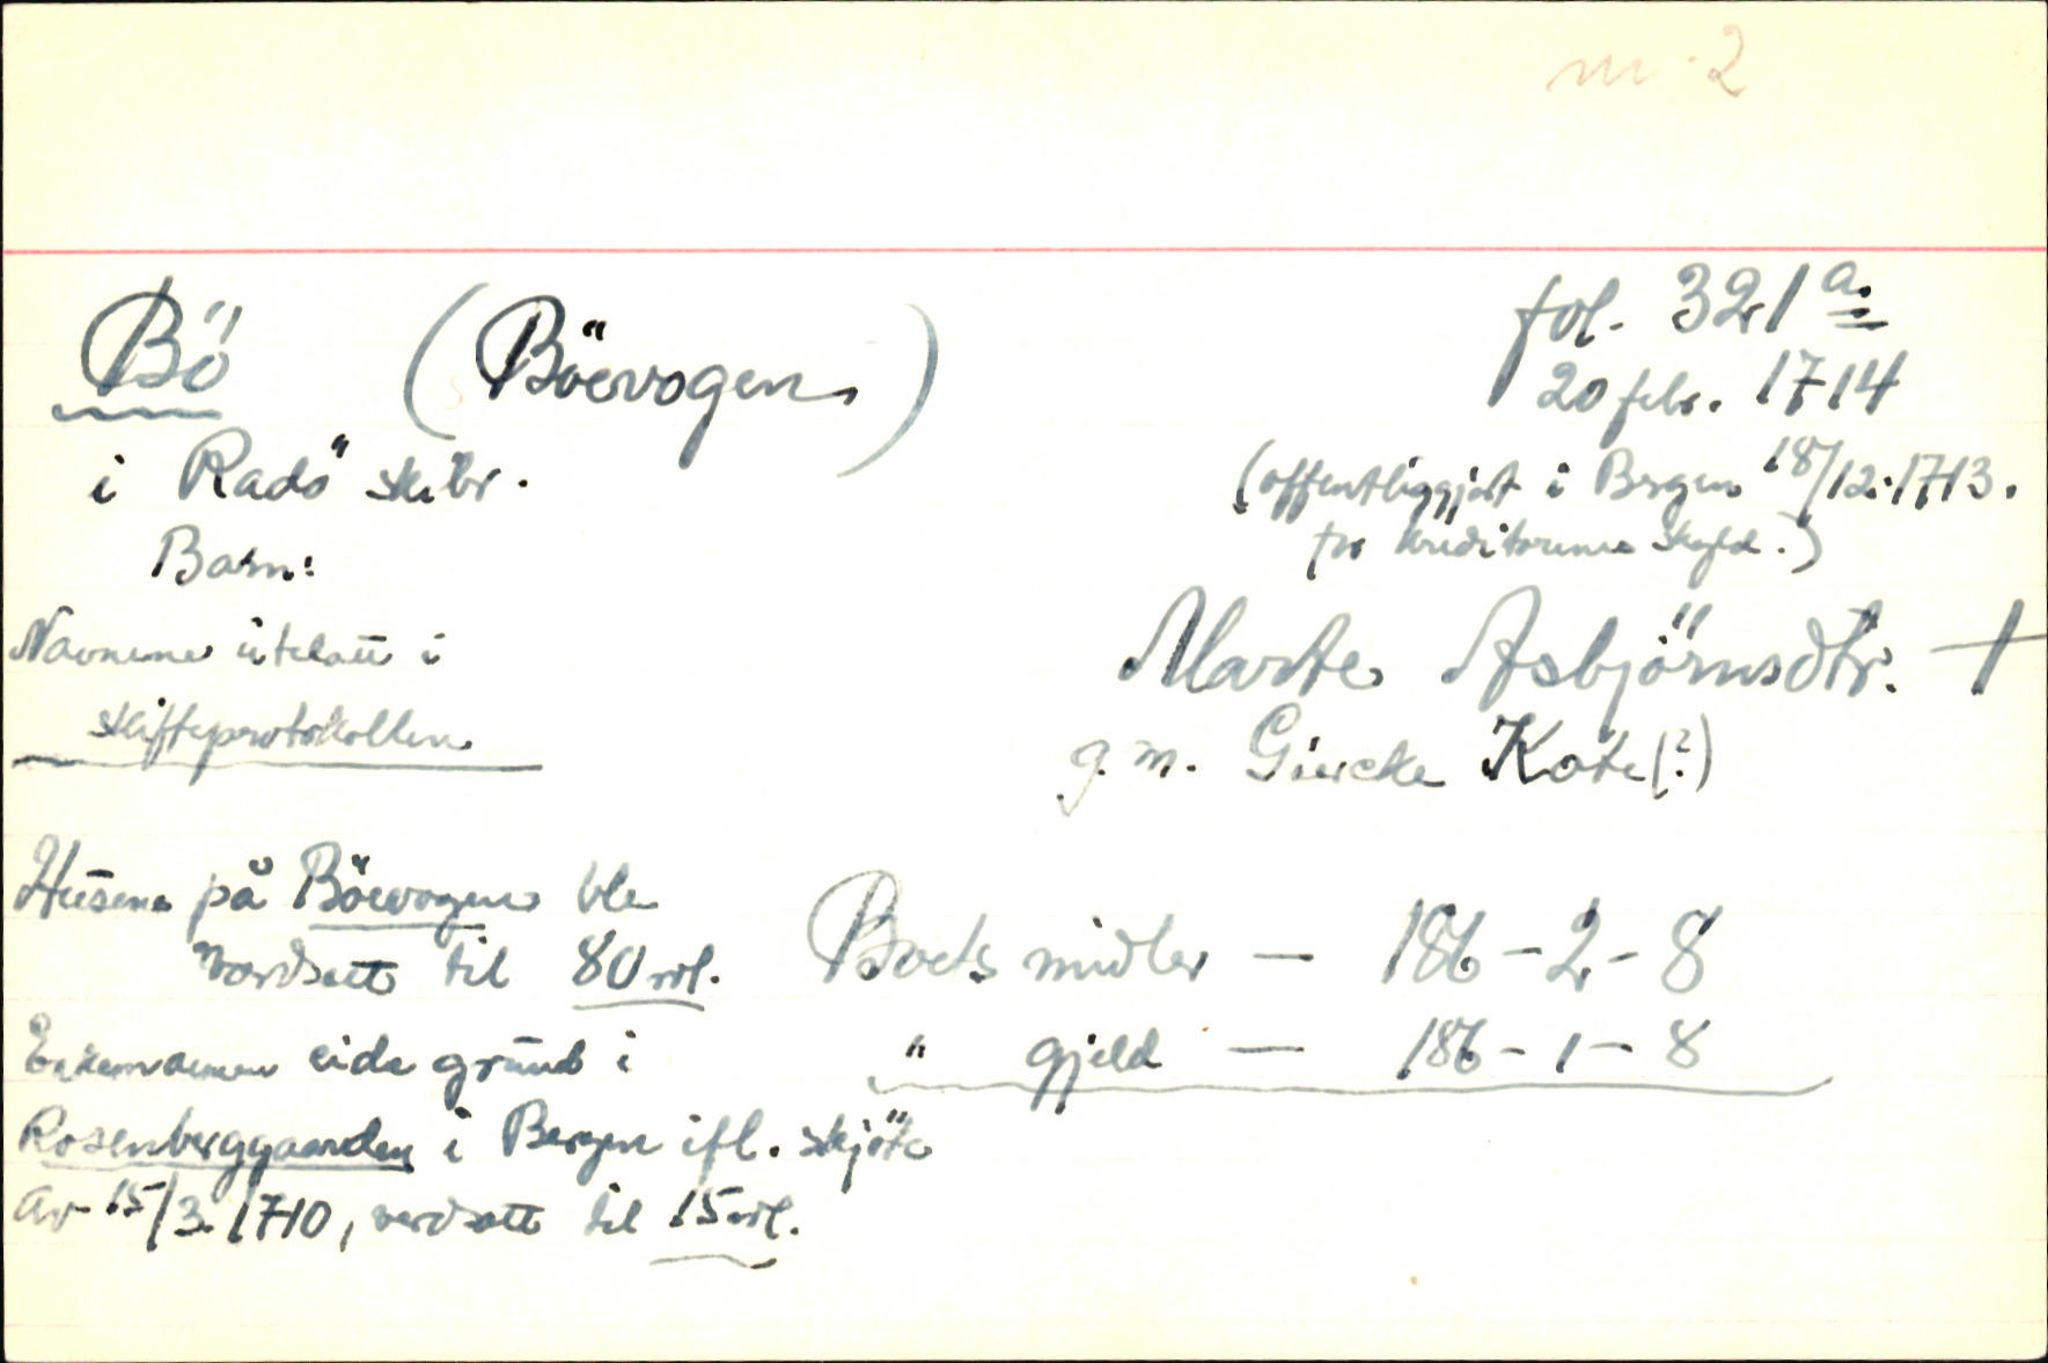 nr. 2
Bö (Böevogen)
i Radö skibr.
Barn:
Navnene utelatt i
skifteprotokollen
fol. 321 a.
20 febr. 1714
(offentliggjort i Bergen 18/12. 1713.
for kreditorenes skyld.)
Marte Asbjörnsdtr. †
g. m. Giercke Kote (?)
Husene på Böevogen ble
verdsatt til 80 rdl.
Enkemannen eide grund i
Rosenberggaarden i Bergen ifl. skjöte
av 15/3. 1710, verdsatt til 15 rdl.
Boets midler — 186 - 2 - 8
" gjeld — 186 - 1 - 8